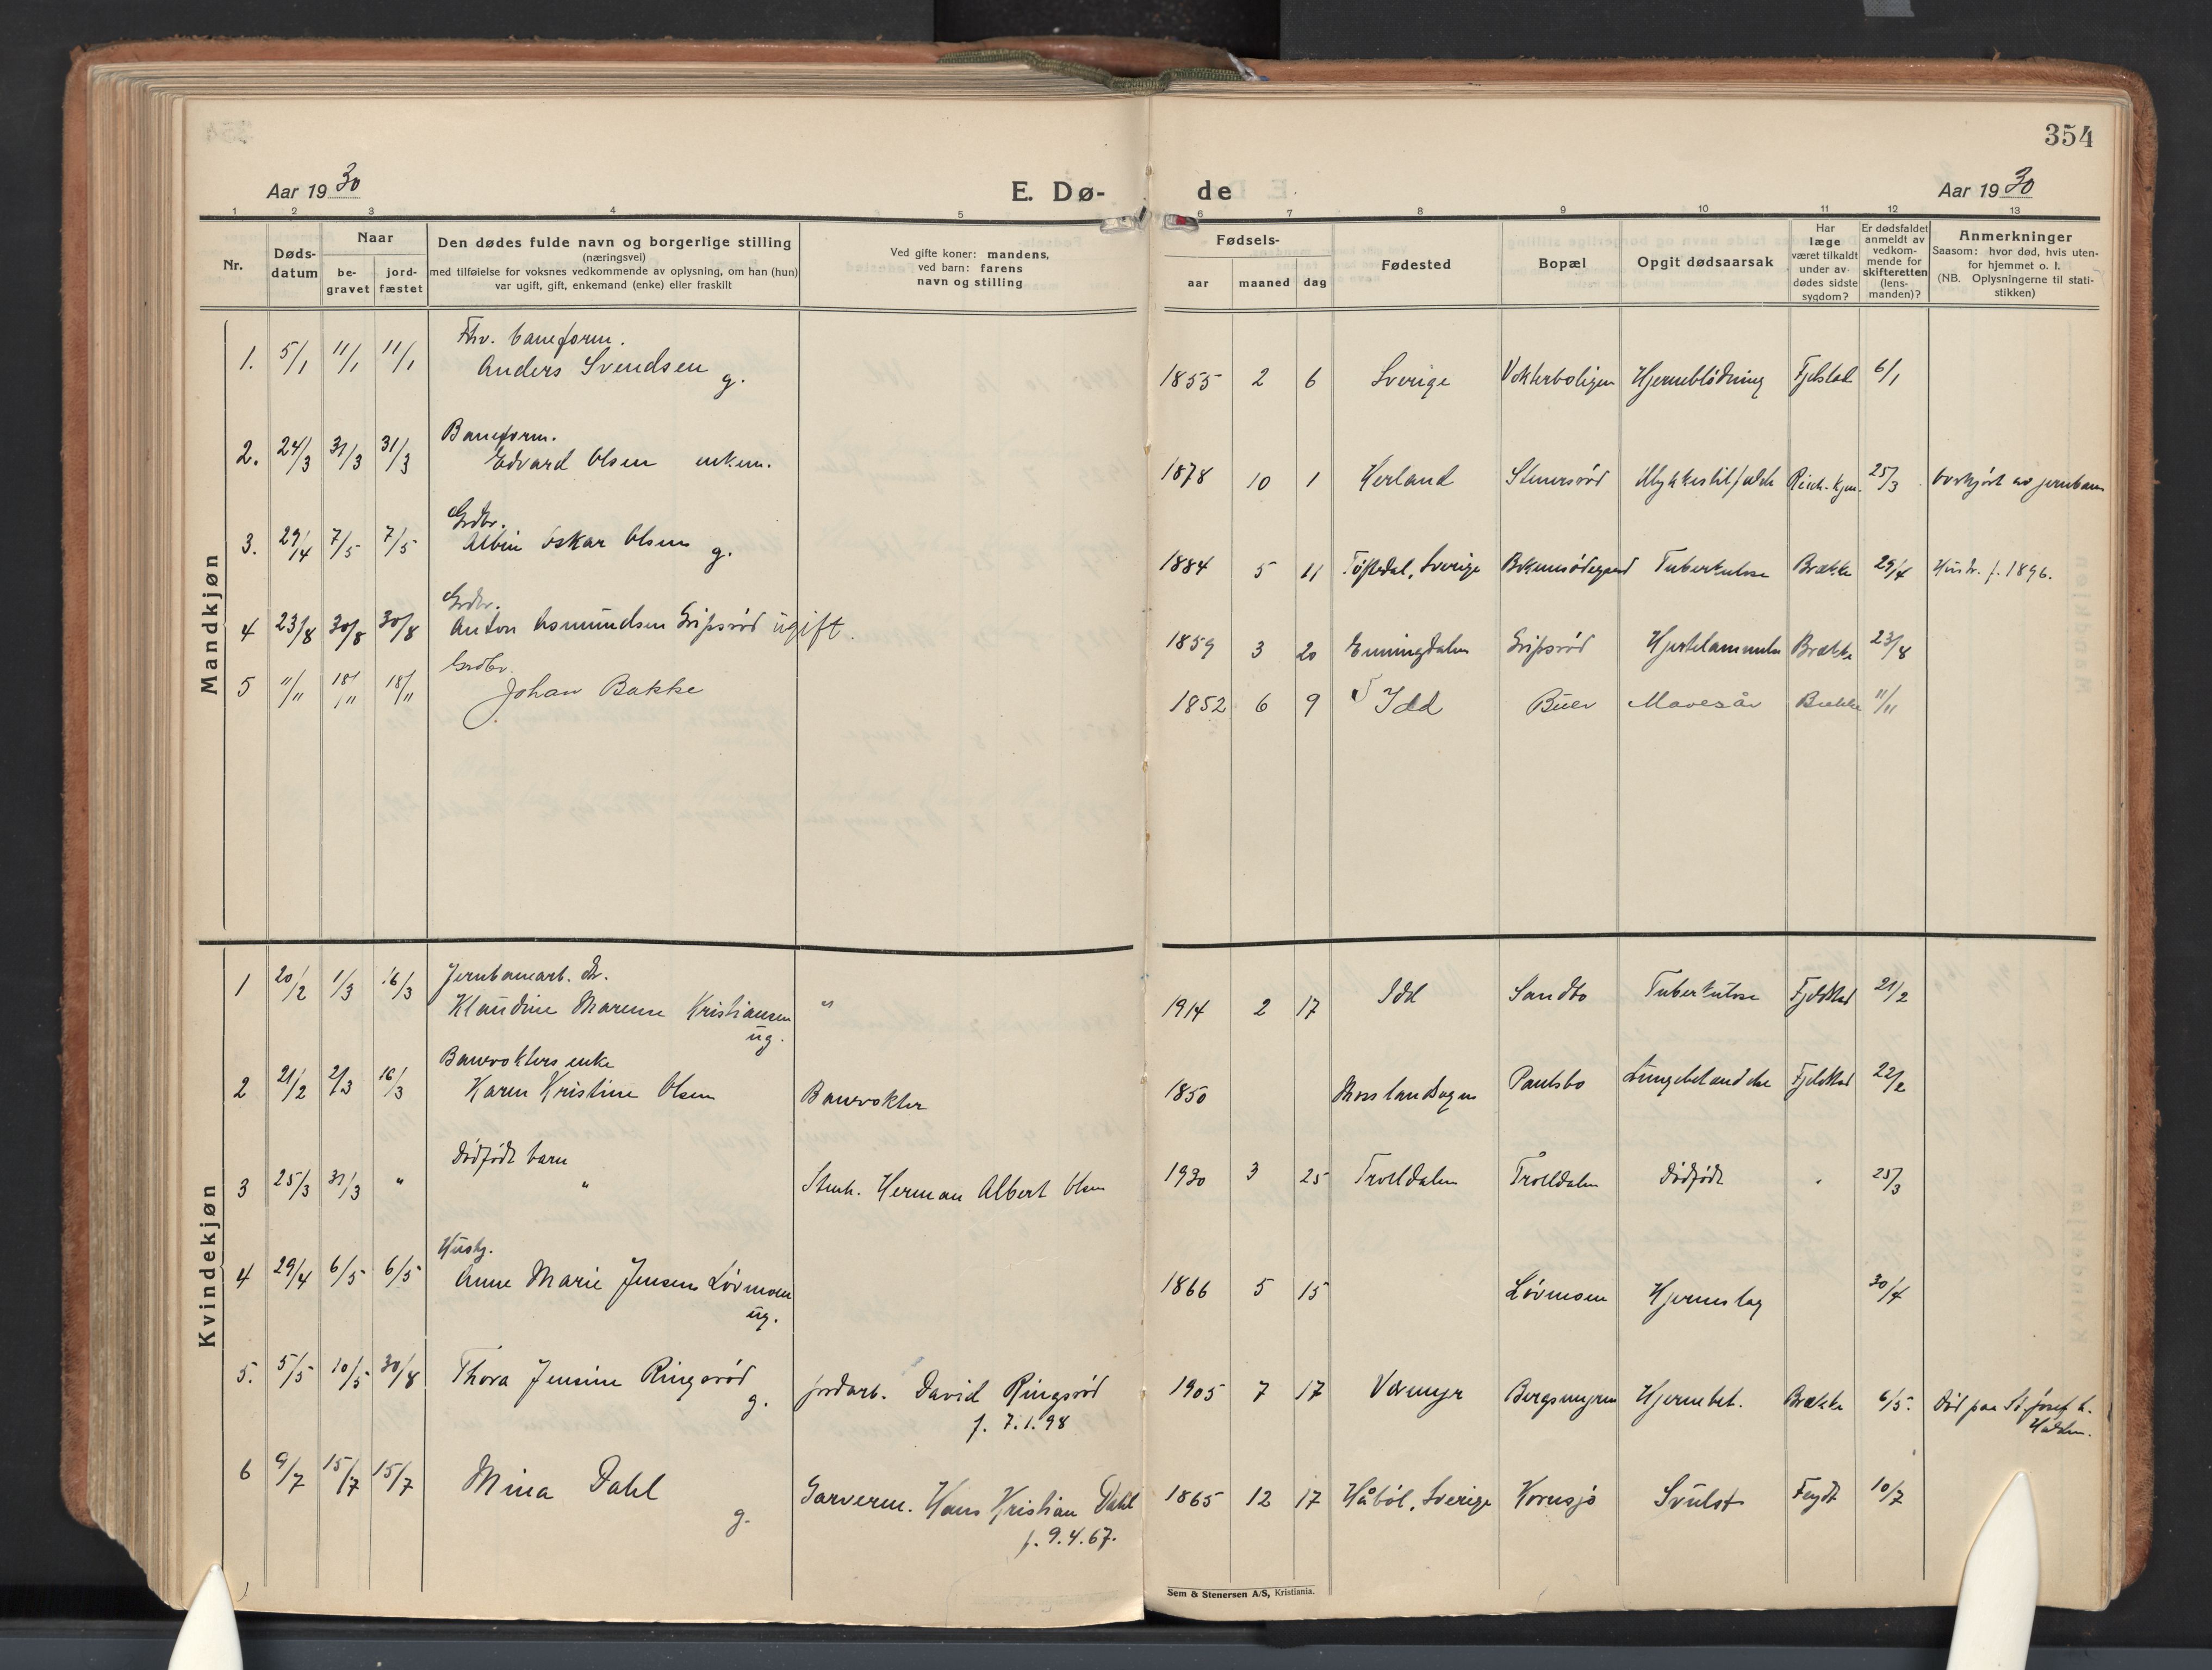 354
Aar 1930
E. Dø-
de
Aar 1930
1 2 3 4 5 6 7 8 9 10 11 12 13
Nr.
Døds-
datum
Naar
be-
gravet
jord-
fæstet
Den dødes fulde navn og borgerlige stilling
(næringsvei)
med tilføielse for voksnes vedkommende av oplysning, om han (hun)
var ugift, gift, enkemand (enke) eller fraskilt
Ved gifte koner: mandens,
ved barn: farens
navn og stilling
Fødsels-
aar maaned dag
Fødested
Bopæl
Opgit dødsaarsak
Har
læge
været tilkaldt
under av-
dødes sidste
sygdom?
Er dødsfaldet
anmeldt av
vedkom-
mende for
skifteretten
(lens-
manden)?
Anmerkninger
Saasom: hvor død, hvis uten-
for hjemmet o. l.
(NB. Oplysningerne til stati-
stikken)
Mandkjøn
Fhv. baneform.
1. 5/1 11/1 11/1 Anders Svendsen g. 1855 2 6 Sverige Vokterboligen Hjerneblödning Fjelstad 6/1
Baneform.
2. 24/3 31/3 31/3 Edvard Olsen enkem. 1878 10 1 Herland Stenersröd Ulykkestilfælde 25/3 overkjört av jernbanen
Grdbr.
3. 29/14 7/5 7/5 Albin Oskar Olsen g. 1884 5 11 Töftedal, Sverige Tuberkulose Brække 29/4 Hustr. f. 1896.
Grdbr.
4 23/8 30/8 30/8 Anton Asmundsen Gripsröd ugift. 1859 3 20 Enningdalen Gripsröd Hjertelammelse Brække 23/8
Grdbr.
5 11/11 18/11 18/11 Johan Bakke 1852 6 9 Idd Buer Mavesår Brekke 11/11
Kvindekjøn
Jernbanearb. dr.
1 20/2 1/3 16/3 Klaudine Marense Kristiansen " 1914 2 17 Idd Sandbo Tuberkulose Fjeldstad 21/2
ug.
Banevokters enke
2 21/2 2/3 16/3 Karen Kristine Olsen Banevokter 1850 Paulsbo Lungebetændelse Fjeldstad 22/2
Dödfödt barn
3 25/3 31/3 " " Stenh. Herman Albert Olsen 1930 3 25 Trolldalen Trolldalen Dödfödt " 25/3
Husbg.
4 29/4 6/5 6/5 Anne Marie Jensen Lövmoen 1866 5 15 Lövmoen Hjerneslag 30/4
ug.
5. 5/5 10/5 30/8 Thora Jensine Ringsröd g. jordarb. David Ringsröd 1905 7 17 Vormyr Bergsmyren Hjernebet. Brække 6/5. Död paa St. Josef h.
f. 7.1.98 Halden.
6 9/7 15/7 15/7 Mina Dahl g. Garverm. Hans Kristian Dahl 1865 12 17 Håböl, Sverige Kornsjö Svulst Feydt 10/7
f. 9.4.67.
Sem & Stenersen A/S, Kristiania.